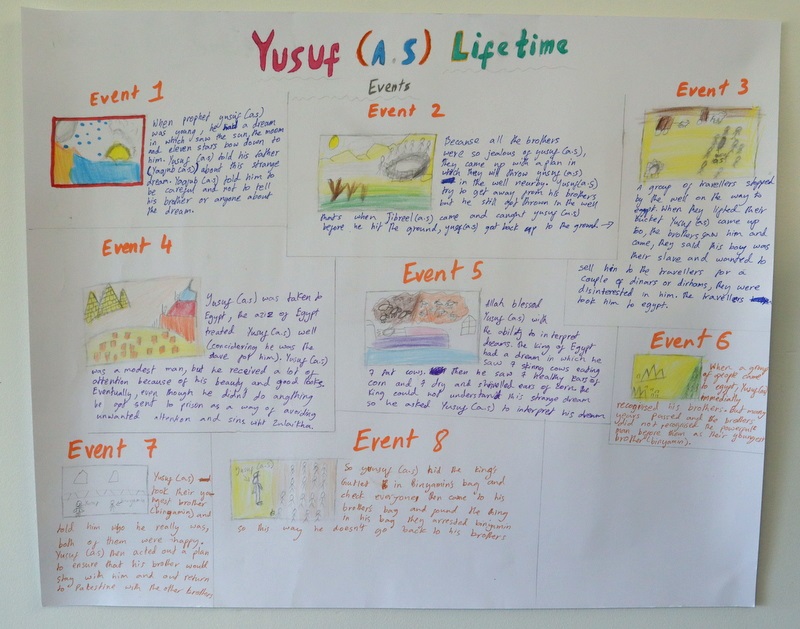 Yusuf (A.S) Lifetime
Events
Event 1
When prophet yusuf (a.s)
was young, he had a dream
in which saw the sun, the moon
and eleven stars bow down to
him. Yusuf (a.s) told his father
(Yaqub (a.s) about this strange
dream. Yaqub (a.s) told him to
be careful and not to tell
his brother or anyone about
the dream.
Event 2
Because all the brothers
were so jealous of yusuf (a.s),
they came up with a plan in
which they will throw yusuf (a.s)
in the well nearby. Yusuf (a.s)
try to get away from his brothers
but he still got thrown in the well
thats when Jibreel (a.s) came and caught yusuf (a.s)
before he hit the ground, yusuf (a.s) got back up to the ground →
Event 3
A group of travellers stopped
by the well on the way to
egypt. When they lifted their
bucket Yusuf (a.s) came up
so, the brothers saw him and
came, they said this boy was
their slave and wanted to
sell him to the travellers for a
couple of dinars or dirhams, they were
disinterested in him. the travellers
took him to egypt.
Event 4
Yusuf (a.s) was taken to
Egypt, the aziz of Egypt
treated Yusuf (a.s) well
(considering he was the
slave for him). Yusuf (a.s)
was a modest man, but he received a lot of
attention because of his beauty and good looks
Eventually, even though he didn't do anything
he got sent to prison as a way of avoiding
unwanted attention and sins wit Zulaikha.
Event 5
Allah blessed
Yusuf (a.s) with
the ability to interpret
dreams. The king of Egypt
had a dream in which he
saw 7 skinny cows eating
7 fat cows. then he saw 7 healthy ears of
corn and 7 dry and ears of corn. the
king could not understand this strange dream
so he asked Yusuf (a.s) to interpret his dream
Event 6
When a group
of people came
to egypt, Yusuf (a.s)
recognised his brothers. But many
years passed and the brothers
did not recognise the powerful
man before them as their youngest
brother (binyamin).
Event 7
Yusuf (a.s)
took their youn
gest brother
(bingamin) and
told him who he really was,
both of them were happy.
Yusuf (a.s) then acted out a plan
to ensure that his brother would
stay with him and not return
to Palestine with the other brothers
Event 8
So yousuf (a.s) hid the king's
in Binyamin's bag and
check everyone, then came to his
brothers bag and found the thing
in his bag they arrested banjamin
so this way he doesn't go back to his brothers